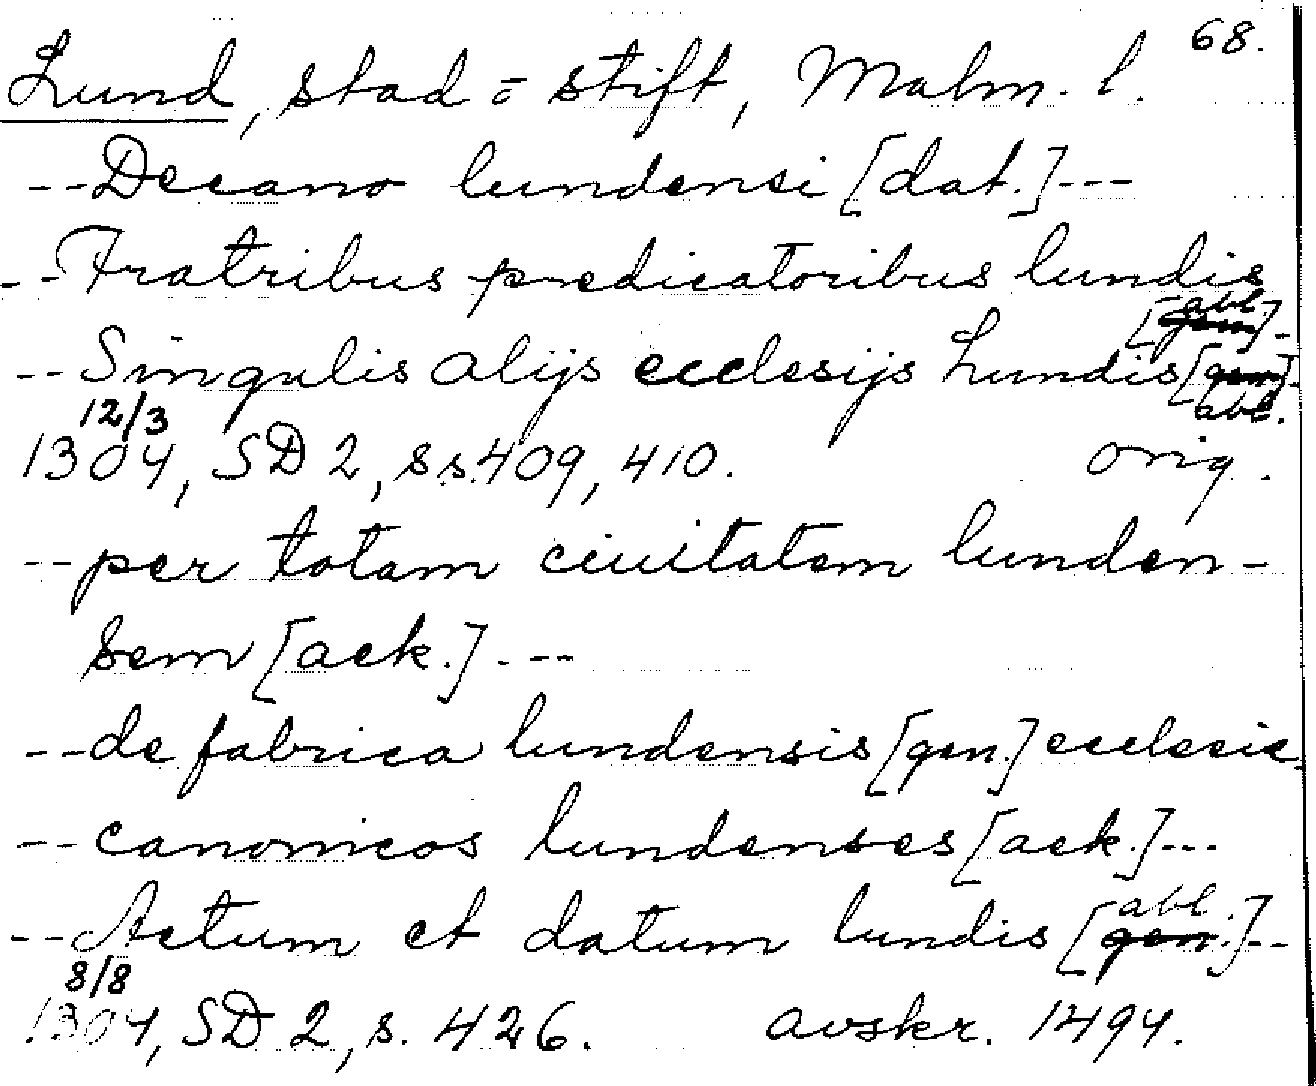 68.
Lund, stad o. stift, Malm. l.
--Decano lundensi [dat.]---
--Fratribus predicatoribus lundis
[gen abl.]-
--Singulis alijs ecclesijs Lundis [gen abl.]-
12/3
1304, SD 2, ss. 409, 410. orig.
--per totam ciuitatem lunden-
sem [ack.].--
--de fabrica lundensis [gen.] ecclesie
--canonicos lundenses [ack.]---
--Actum et datum lundis [gen. abl.]--
8/8
1304, SD 2, s. 426. avskr. 1494.